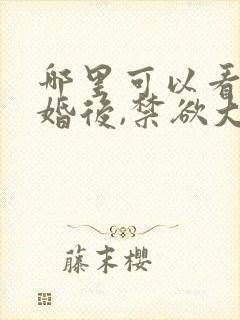 哪里可以看
婚後,禁欲大
藤末樱